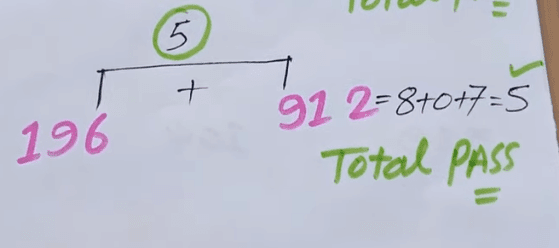 5
+
196 912=8+0+7=5
Total PASS